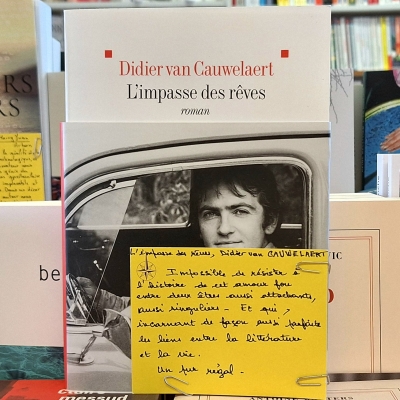 Didier van Cauwelaert
L'impasse des rêves
roman
L'impasse des rêves, Didier van CAUWELAERT
Impossible de résister à
l'histoire de cet amour fou
entre deux êtres aussi attachants,
aussi singuliers - Et qui,
incarnent de façon aussi parfaite
les liens entre la littérature
et la vie.
Un pur régal -
be
VIC
messud